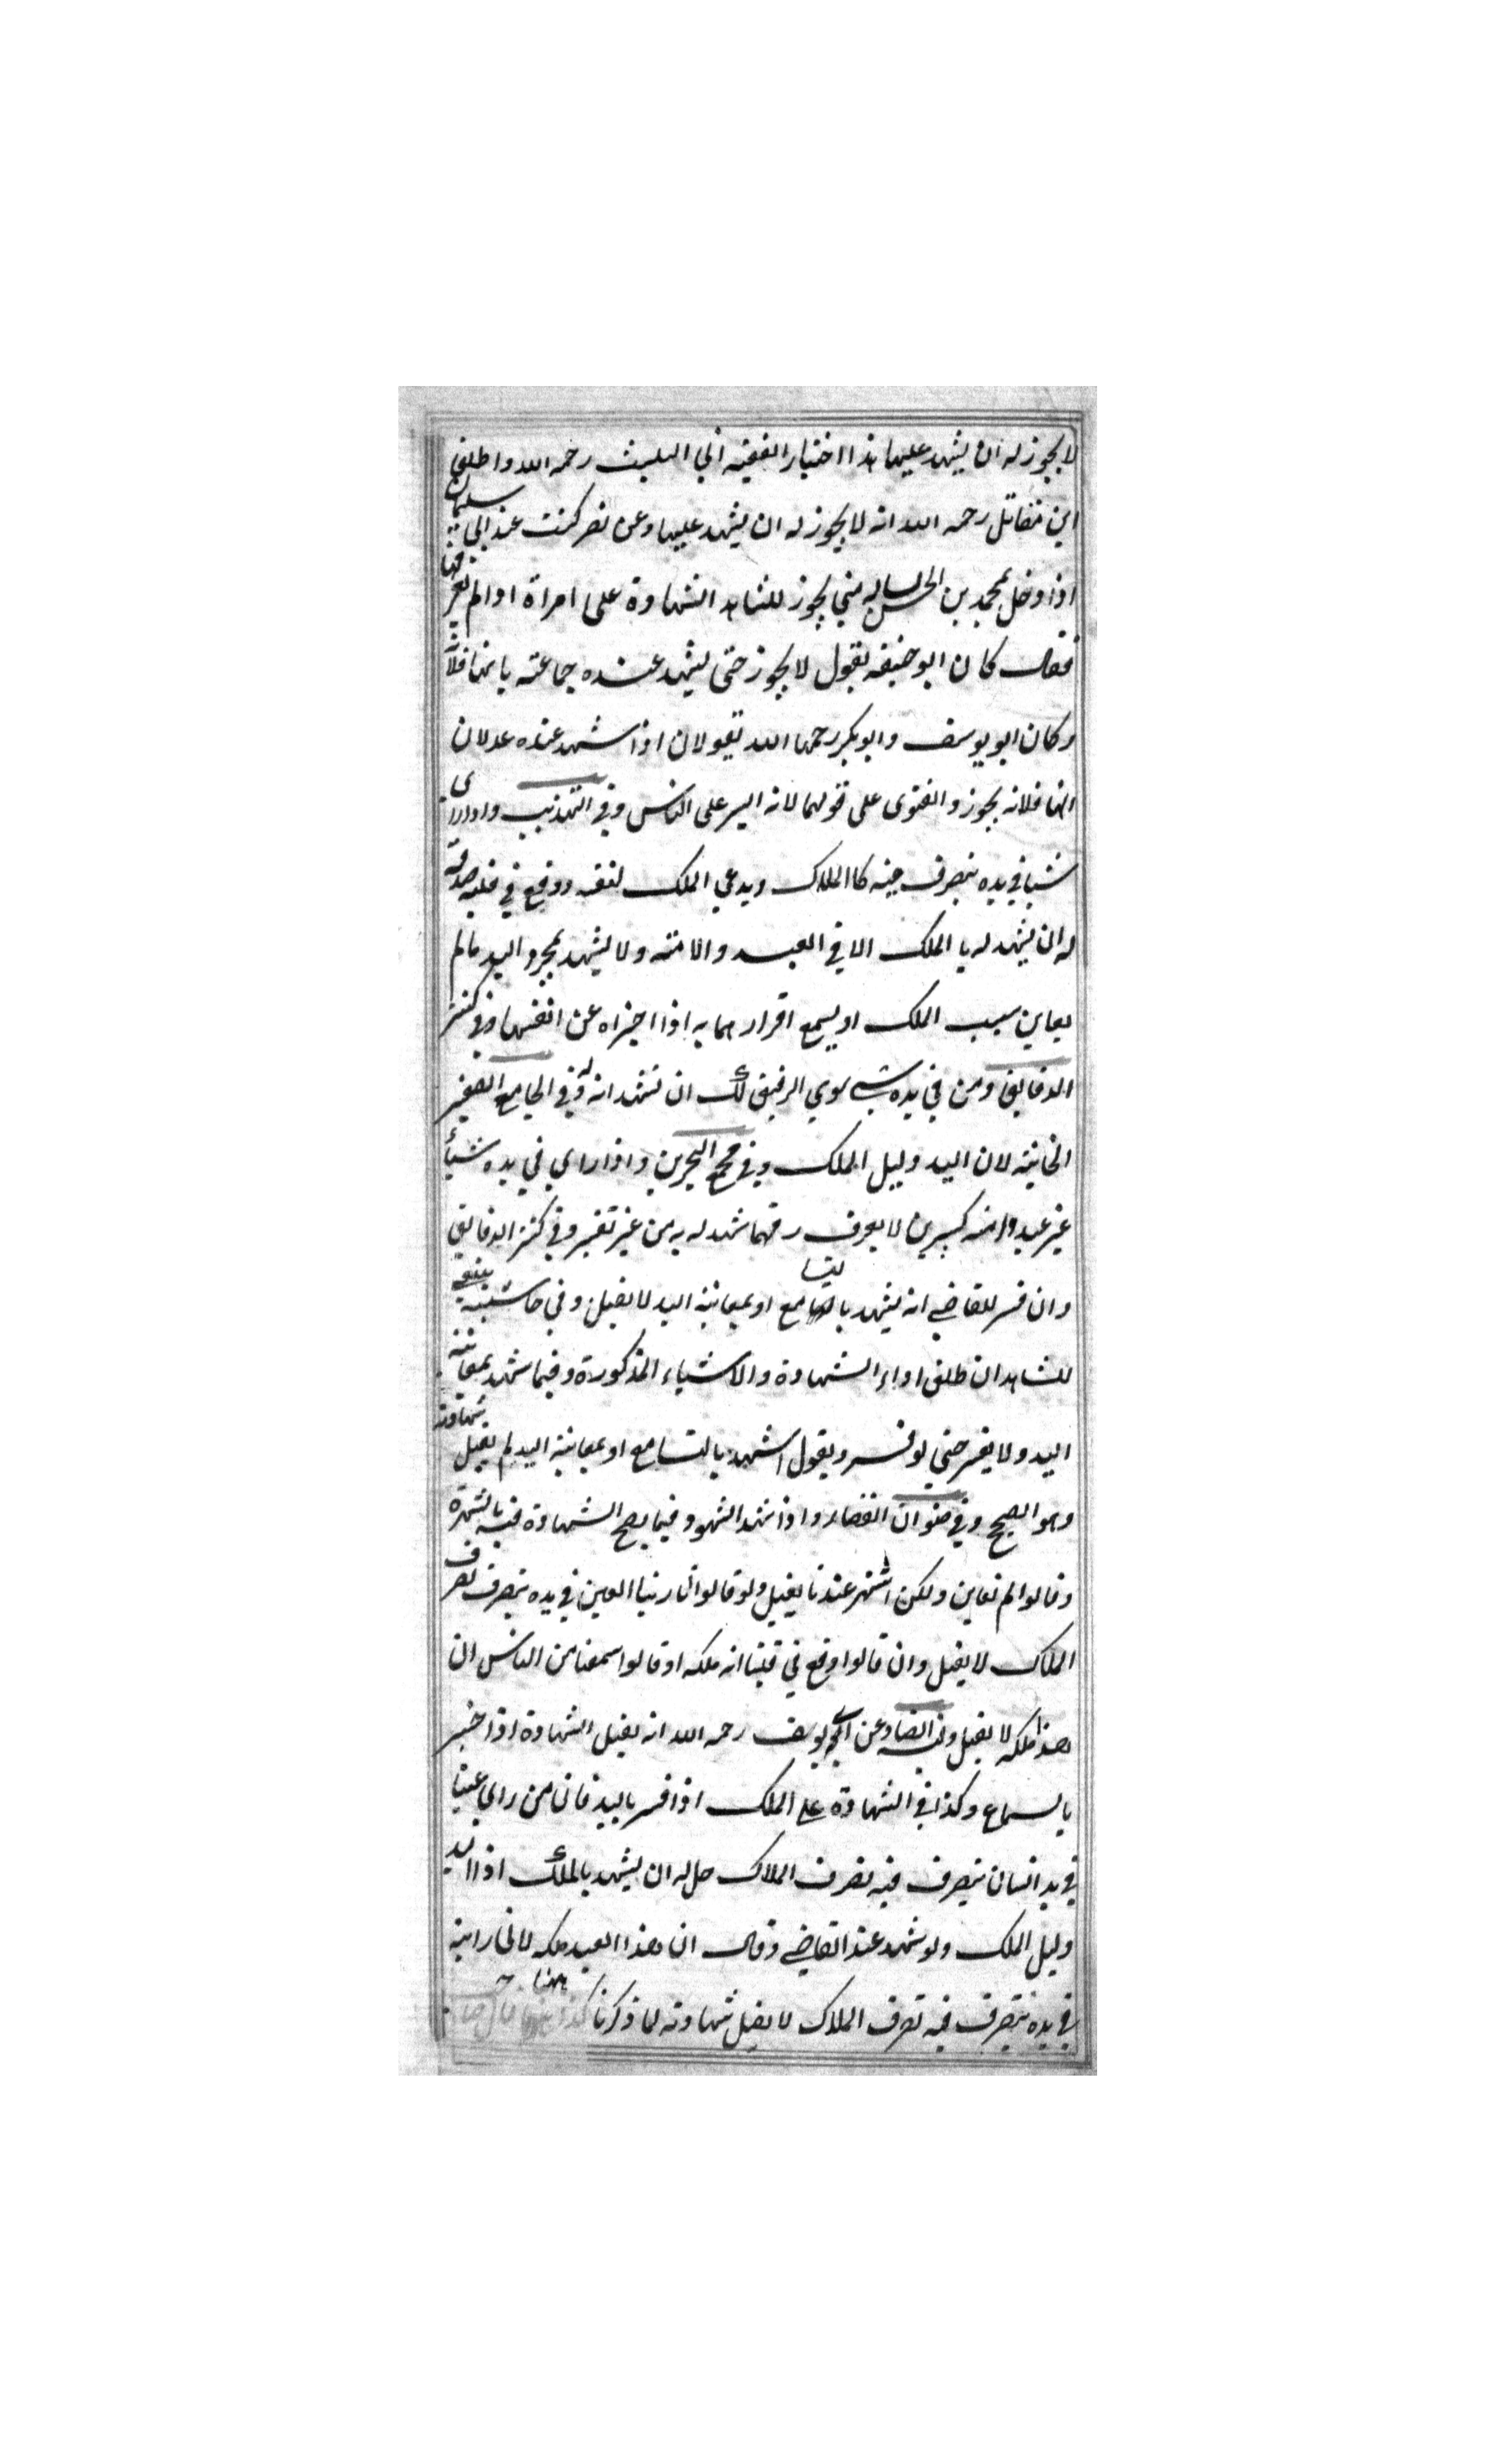 لا يجوز له ان يشهد عليها هذا اختيار الفقيه ابي الليث رحمه الله واطلق
ابن مقاتل رحمه الله انه لا يجوز له ان يشهد عليها وعن نصر كنت عند ابي سليمان
اذا دخل محمد بن الحسن متى يجوز للشاهد الشهادة على امراة اذا لم يعرفها
فقال كان ابو حنيفه يقول لا يجوز حتى يشهد عنده جماعته بانها فلانة
وكان ابو يوسف وابو بكر رحمها الله يقولان اذا شهد عنده عدلان
انها فلانه يجوز والفتوى على قولهما لانه ايسر على الناس وفي التهذيب واذا راى
شيا في يده يتصرف فيه كالملاك ويدعي الملك لنفسه ووقع في قلبه صدقه
له ان يشهد له بالملك الا في العبد والامته ولا يشهد بمجرد اليد مالم
يعاين سبب الملك او يسمع اقرارهما به اذا اخبراه عن انفسهما وفي كنز
الدقايق ومن في يده شي سوي الرقيق لك ان تشهد انه له وفي الجامع الصغير
الخانية لان اليد دليل الملك وفي مجمع البحرين واذا راي في يده شيأ
غير عبد وامته كبيرين لا يعرف رقهما شهد له به من غير تفسير وفي كنز الدقايق
وان فسر للقاضي انه يشهد بالتسامع او بمعاينة اليد لا يقبل وفي حاشيته ينبغي
للشاهد ان يطلق اداء الشهادة والاشياء المذكورة وفيما شهد بمعاينة
اليد ولا يفسر حتي لو فسر ويقول اشهد بالتسامع او بمعاينة اليد لم يقبل شهادته
وهو الصحيح وفي صنوان القضاء واذا شهد الشهود فيما يصح الشهادة فيه بالشهرة
وقالوا لم نعاين ولكن اشتهر عندنا يقبل ولو قالوا انا راينا العين في يده يتصرف تصرف
الملاك لا يقبل وان قالوا وقع في قلبنا انه ملكه او قالوا سمعنا من الناس ان
هذا ملكه لا يقبل وفيه ايضا وعن ابي يوسف رحمه الله انه يقبل الشهادة اذا اخبر
بالسماع وكذا في الشهادة على الملك اذا فسر باليد فان من راي عينا
في يد انسان يتصرف فيه تصرف الملاك حل له ان يشهد بالملك اذ اليد
دليل الملك ولو شهد عند القاضي وقال ان هذا العبد ملكه لاني راينه
في يده يتصرف فيه تصرف الملاك لا يقبل شهادته لما ذكرنا